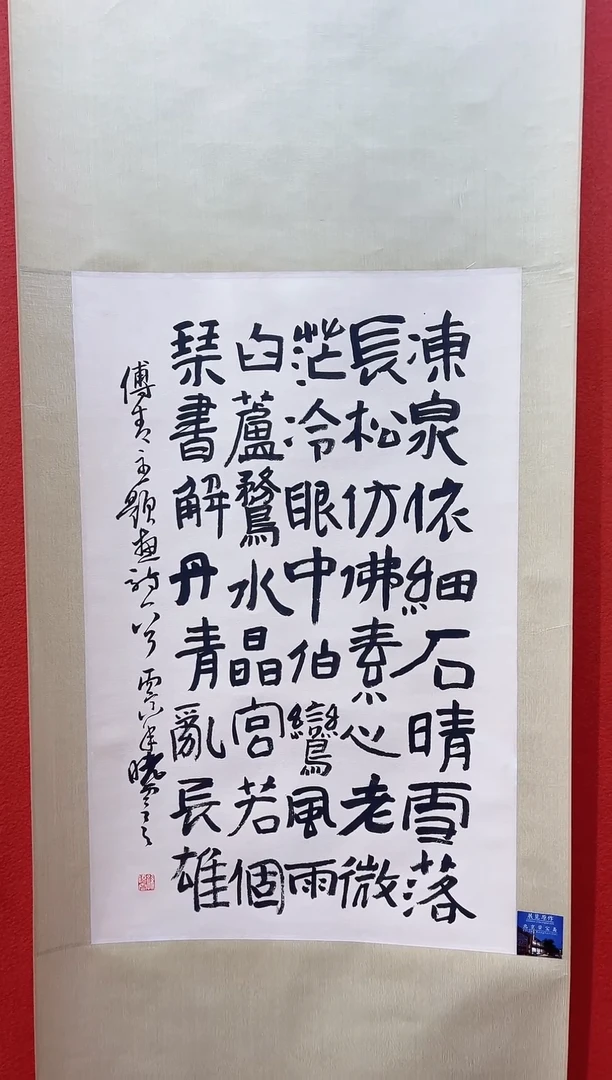 凍泉依細石晴雪落
長松仿佛素心老微
茫冷眼中伯鸞風雨
臼蘆鶩水晶宮若個
琹書解丹青亂長雄
傅青主題畫詩一首